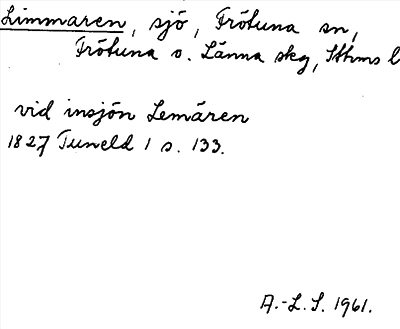 Limmaren, sjö, Frötuna sn,
Frötuna o. Länna skg, Sthms l
vid insjön Lemären
1827 Tuneld 1 s. 133.
A.-L. S. 1961.